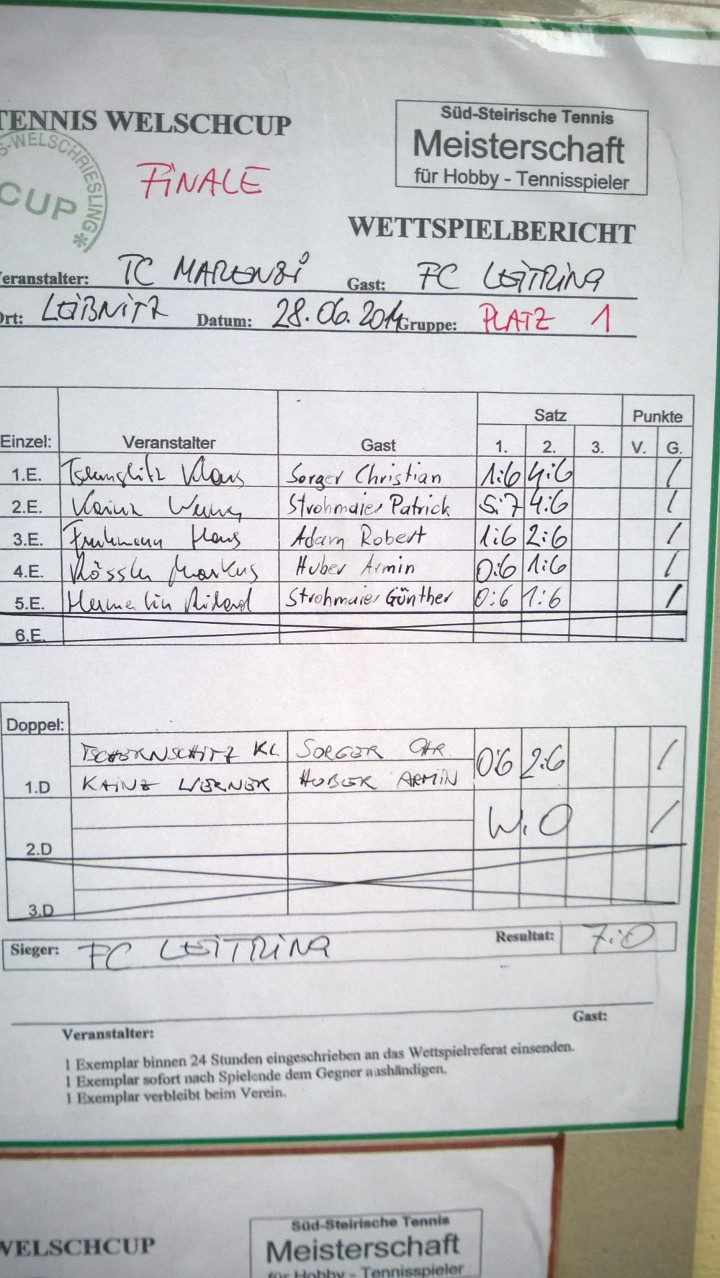 TENNIS WELSCHCUP
Süd-Steirische Tennis
Meisterschaft
für Hobby - Tennisspieler
S-WELSCHRIESLING*
CUP
FINALE
WETTSPIELBERICHT
eranstalter: TC Gast: FC LEITRING
Ort: LEIBNITZ Datum: 28.06.2014 Gruppe: PLATZ 1
Satz Punkte
Einzel: Veranstalter Gast 1. 2. 3. V. G.
1.E. Klaus Sorger Christian 1:6 4:6 /
2.E. Kainz Strohmaier Patrick 5:7 4:6 /
3.E. Hans Adam Robert 1:6 2:6 /
4.E. Markus Huber Armin 0:6 1:6 /
5.E. Strohmaier Günther 0:6 1:6 /
6.E.
Doppel:
TSCHERNSCHITZ KL SORGER CHR. 0:6 2:6 /
1.D KAINZ WERNER HUBER ARMIN
W.O /
2.D
3.D
Sieger: FC LEITRING Resultat: 7:0
Veranstalter: Gast:
1 Exemplar binnen 24 Stunden eingeschrieben an das Wettspielreferat einsenden.
1 Exemplar sofort nach Spielende dem Gegner aushändigen.
1 Exemplar verbleibt beim Verein.
WELSCHCUP
Süd-Steirische Tennis
Meisterschaft
für Hobby - Tennisspieler